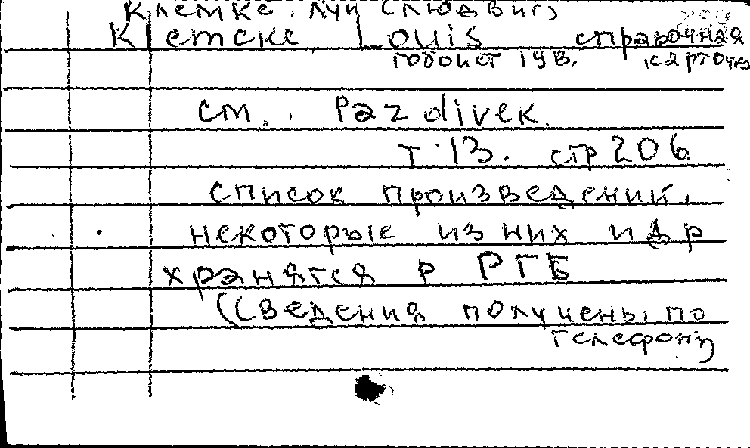 Клемке, Луи (Людвиг)
Klemcke, Louis справочная
гобоист 19в. карточка
см.. Pazdirek.
т 13. стр 206
список произведений,
некоторые из них и др
хранятся в РГБ
(Сведения получены по
телефону